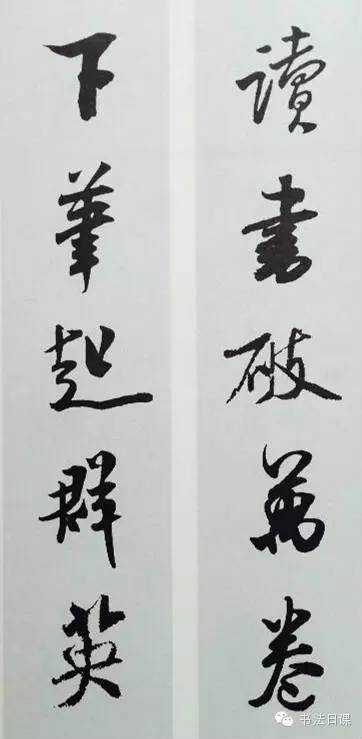 讀書破萬卷
下筆起群英
书法日课